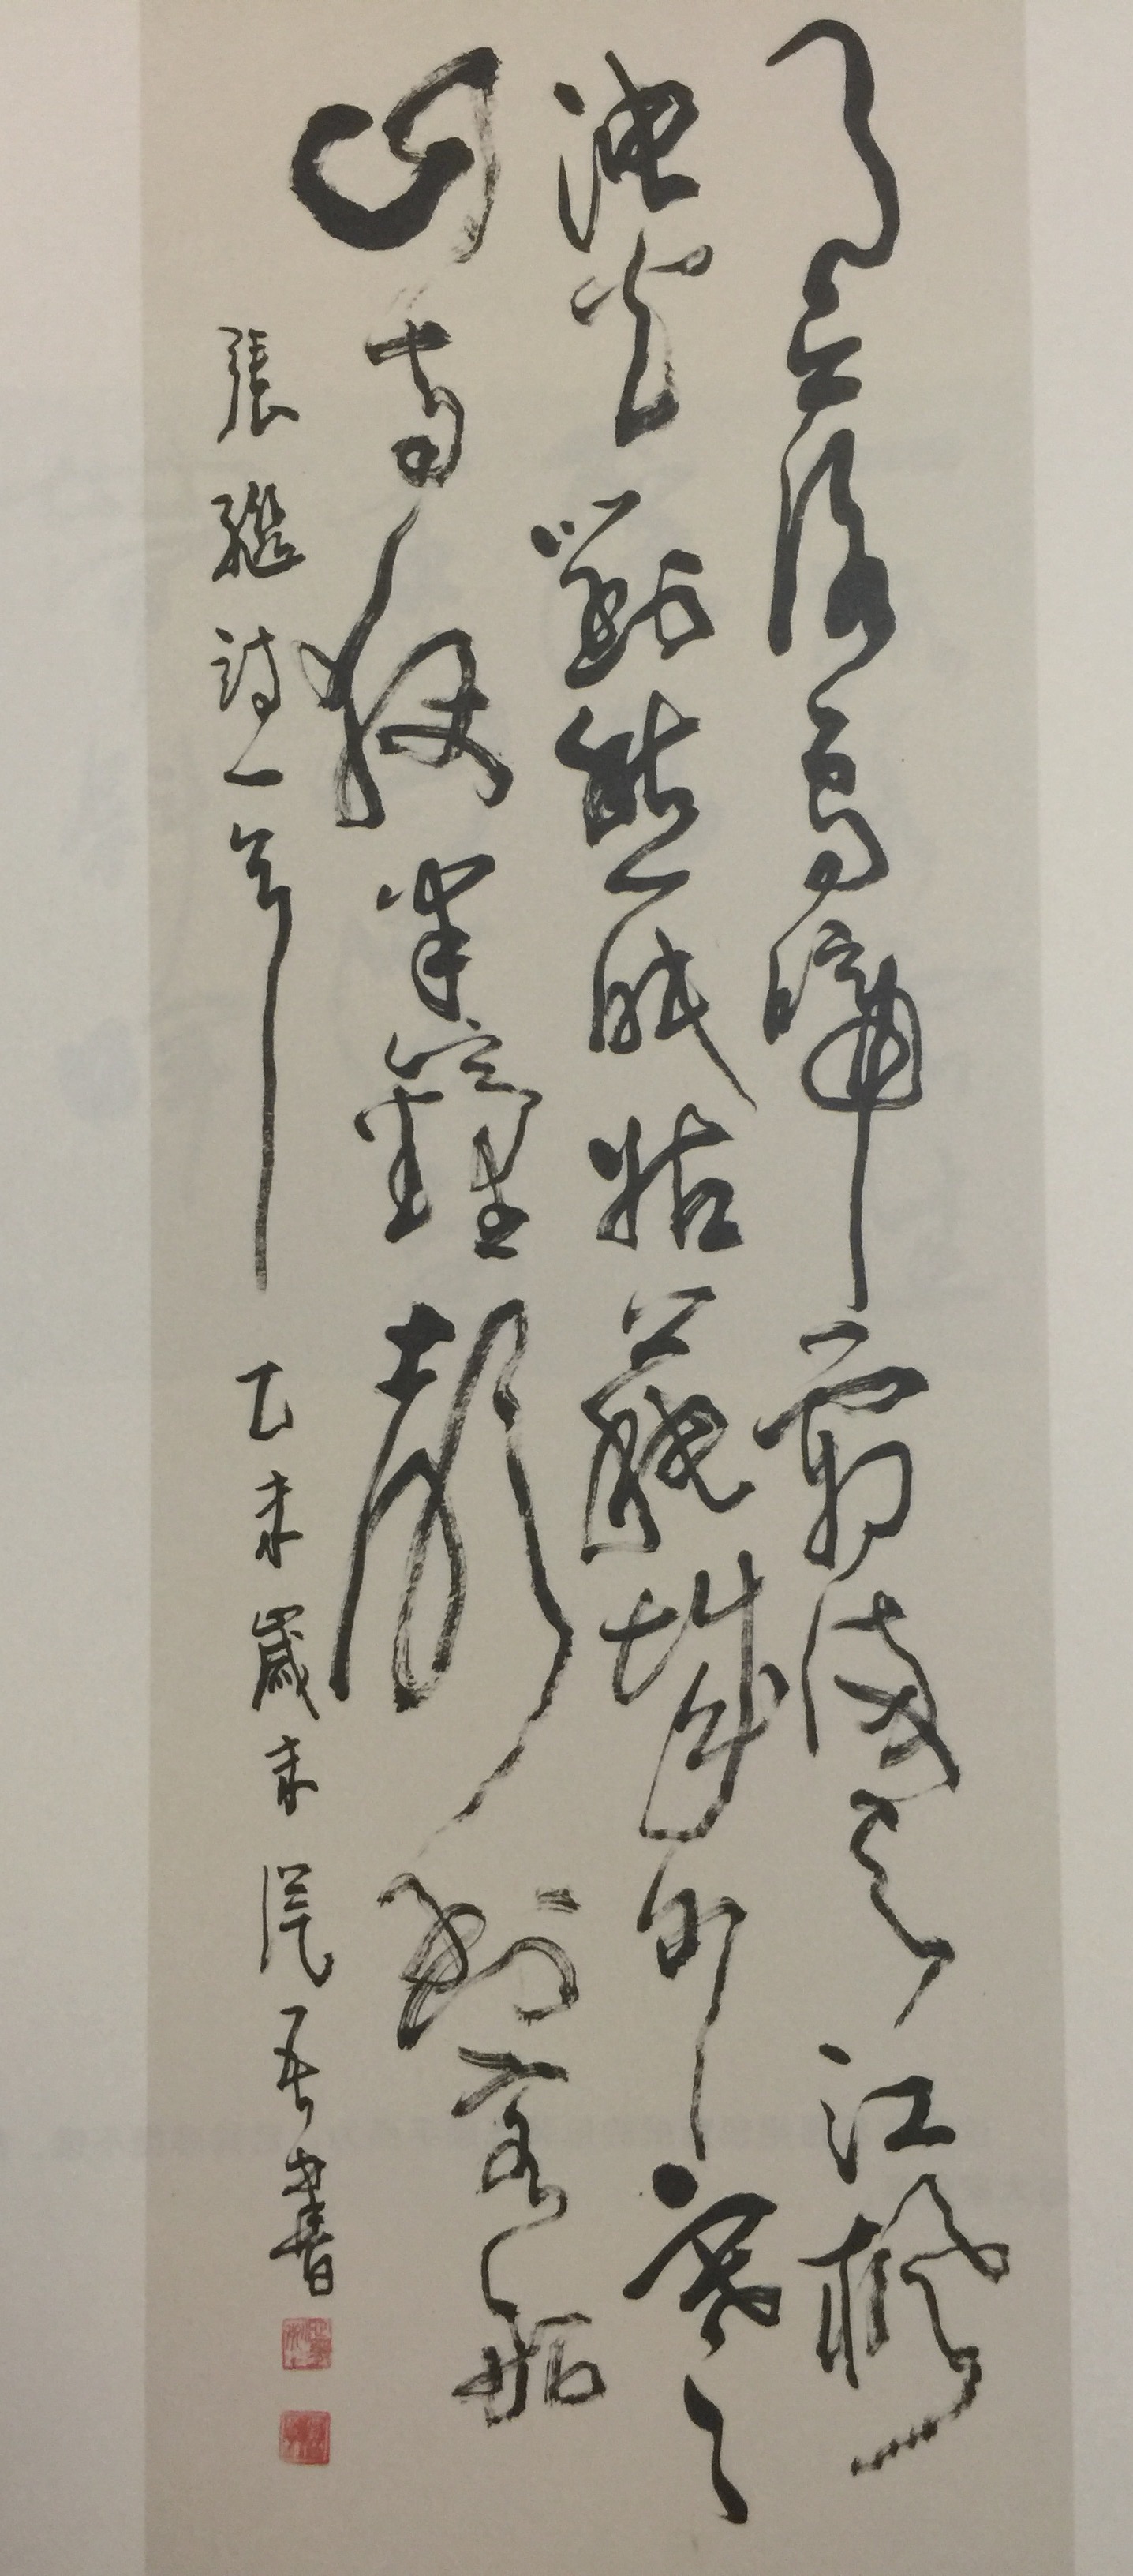 月落烏啼霜滿天江楓
漁火對愁眠姑蘇城外寒
山寺夜半鐘聲到客船
張繼詩一首 乙未歲末 吾書